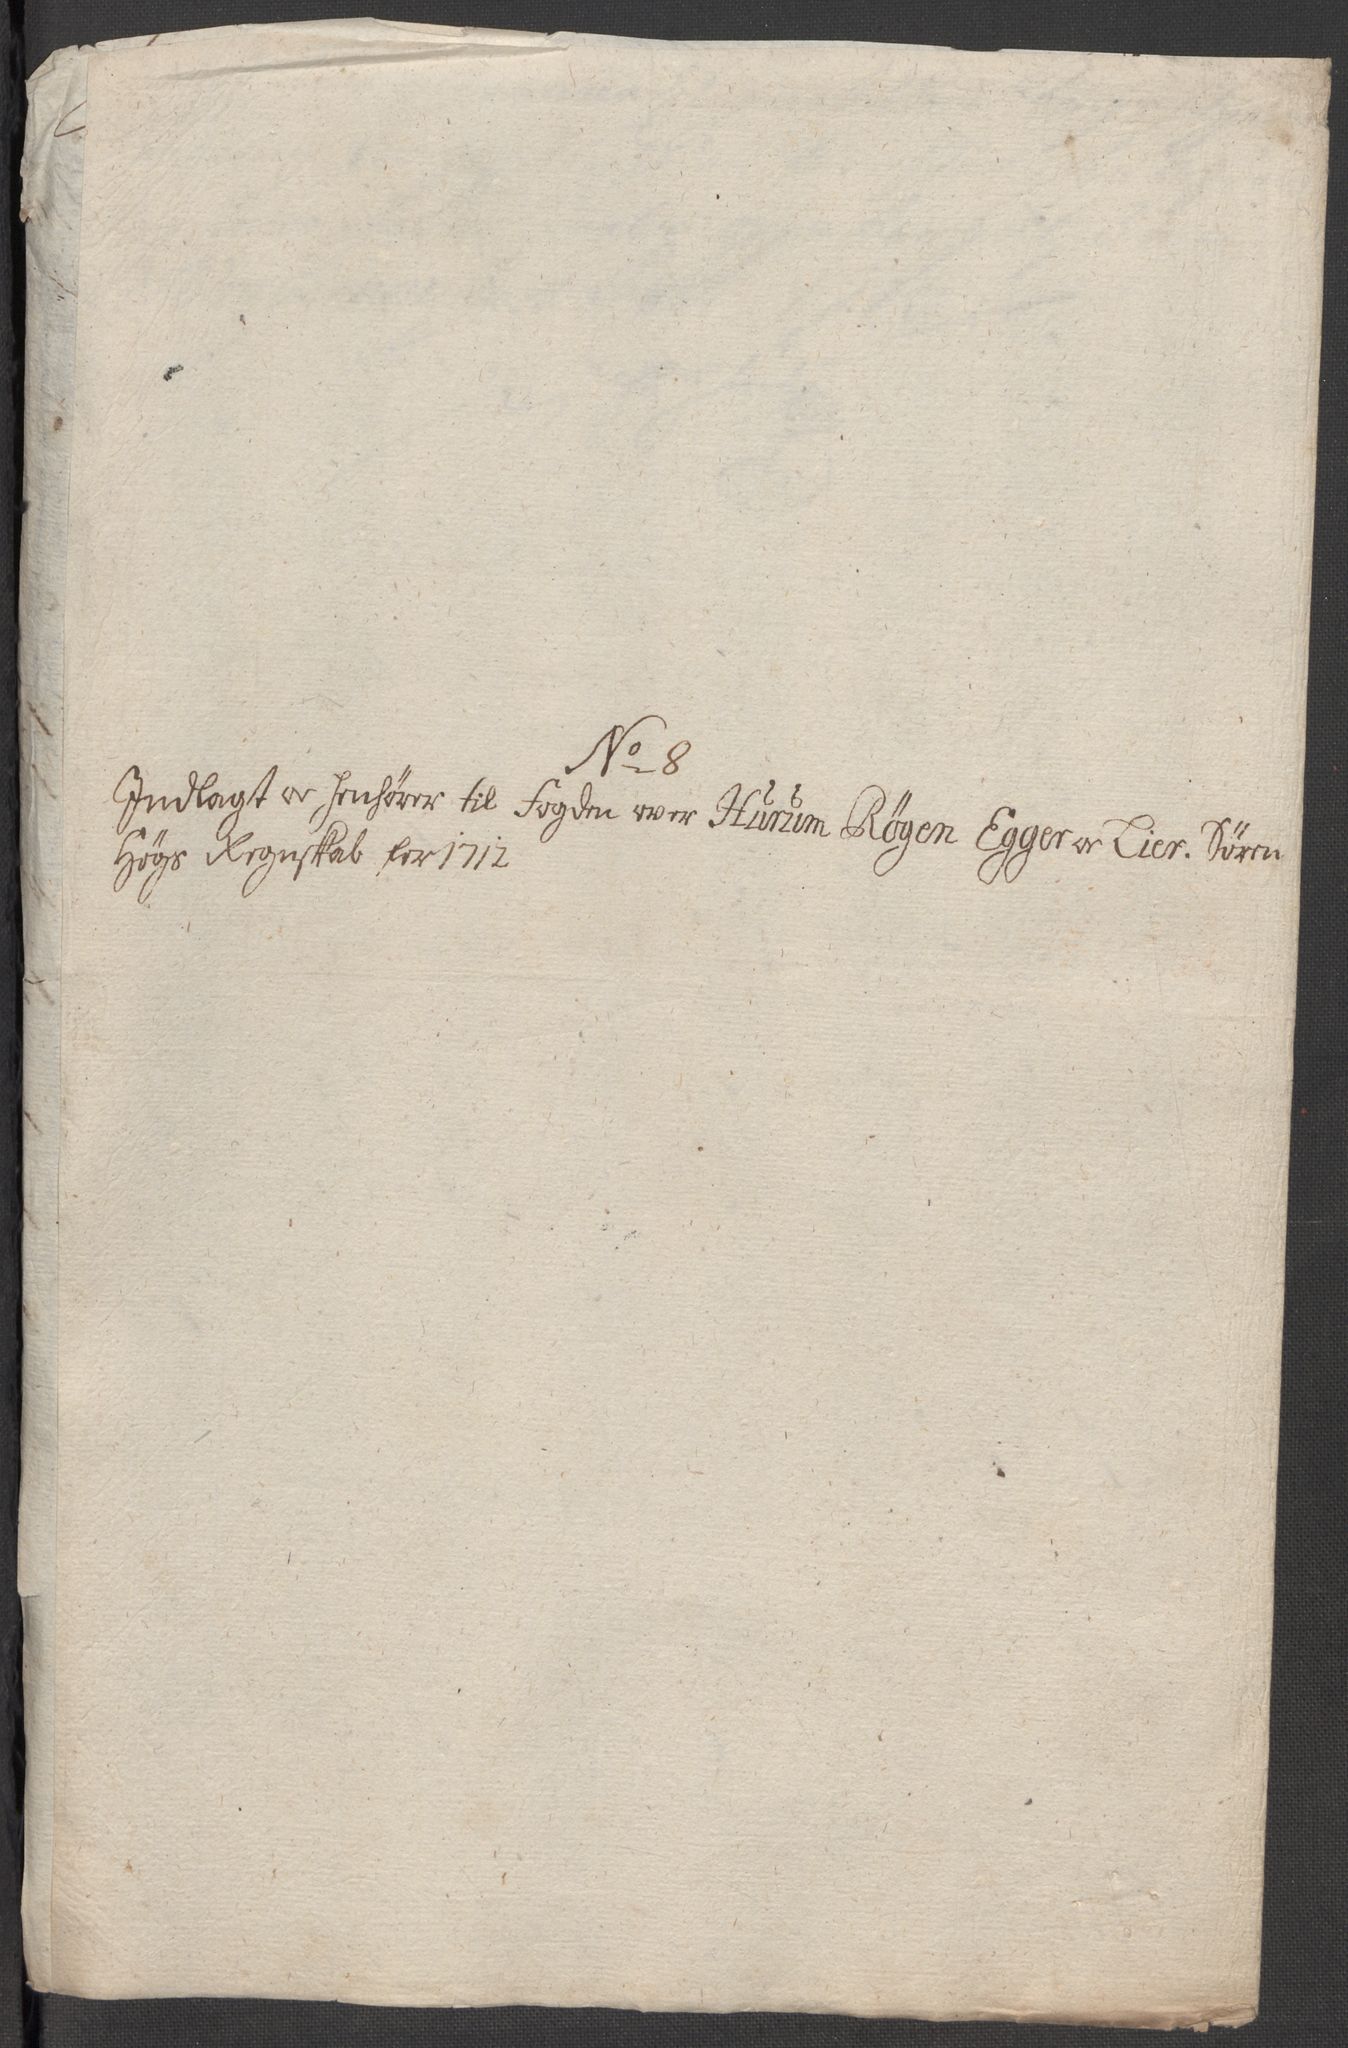 No 8
Indlagt oc henhörer til Fogden over Hurum Røgen Egger oc Lier. Sören
Högs Regnskab for 1712